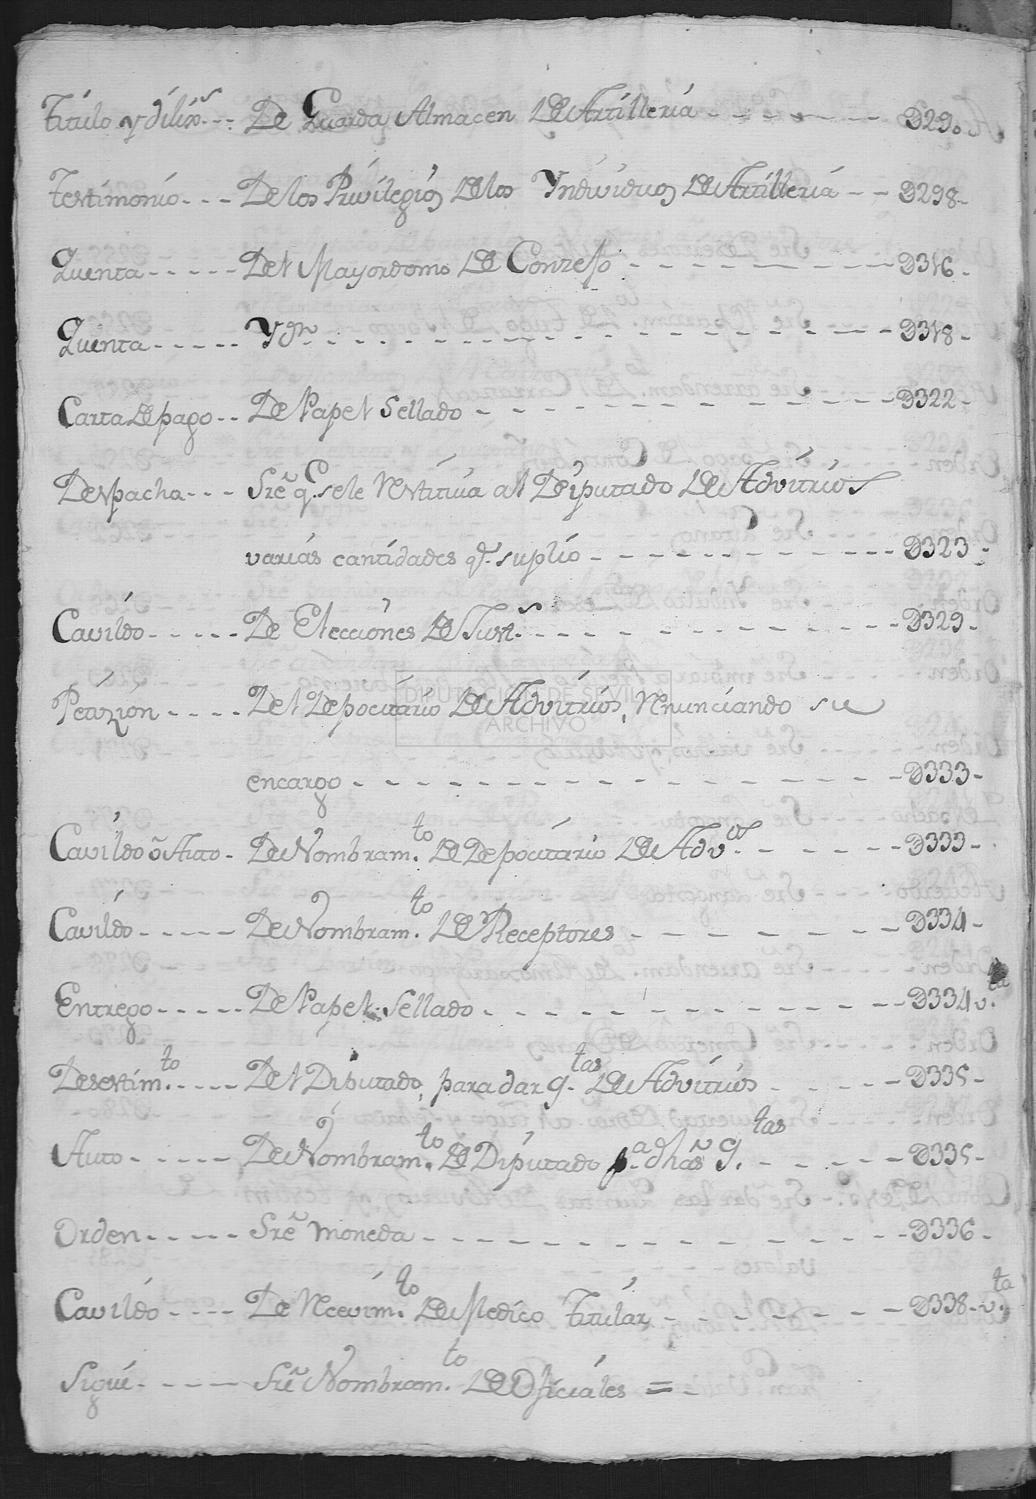 Titulo y dilix.s --- De Guarda Almacen De Artilleria - - - - - - - D290
Testimonio --- De los Privilegios De los Yndividuos De Artilleria - - D298-
Quenta ----- Del Mayordomo De Conzejo - - - - - - - - D316-
Quenta ----- Yd.m - - - - - - - - - - - - - - D318-
Carta De pago -- De Papel Sellado - - - - - - - - - - - D322-
Despacha --- Sre q.e se le restituia al Diputado De Advitrios
varias cantidades q.e suplio - - - - - - - - - D323-
Cavildo ----- De Elecciones De Just.s - - - - - - - - - D329-
DIPUTACION DE SEVILLA
ARCHIVO
Petizion ---- Del Depocitario De Advitrios, Renunciando su
encargo - - - - - - - - - - - - - - D333-
Cavildo õ Auto - De Nombram.to De Depocitario De Adv.os - - - - D333-
Cavildo ----- De Nombram.to De Receptores - - - - - - - D334-
Entrego ----- De Papel Sellado - - - - - - - - - - - D334v.ta
Desestim.to ---- Del Diputado, para dar q.tas De Advitrios - - - - D335-
Auto ----- De Nombram.to De Diputado p.a dhas q.tas - - - - D335-
Orden ----- Sre moneda - - - - - - - - - - - - D336-
Cavildo ---- De Recevim.to De Medico Titular - - - - - - D338-v.ta
Sigue ---- Sre Nombram.to De Oficiales = -